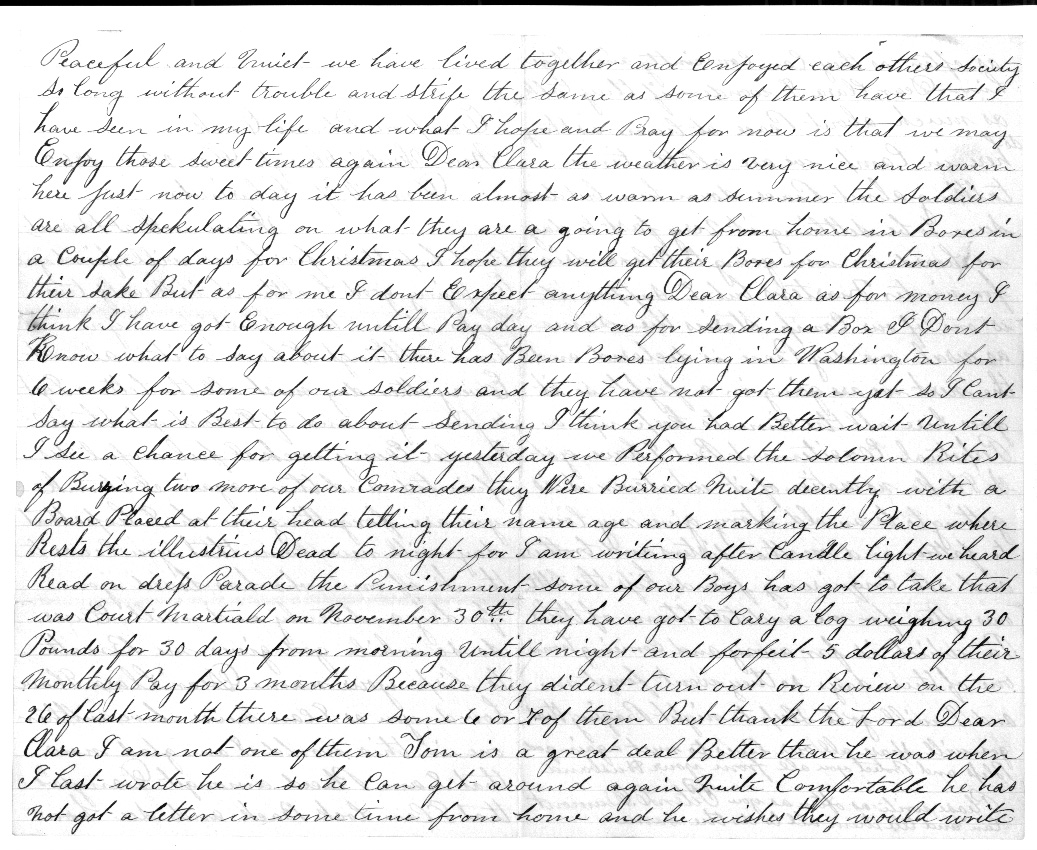 Peaceful and Quiet we have lived together and Enjoyed each others society
so long without trouble and strife the same as some of them have that I
have seen in my life and what I hope and Pray for now is that we may
Enjoy those sweet times again Dear Clara the weather is very nice and warm
here just now to day it has been almost as warm as summer the Soldiers
are all spekulating on what they are a going to get from home in Boxes in
a Couple of days for Christmas I hope they will get their Boxes for Christmas for
their sake But as for me I dont Expect anything Dear Clara as for money I
think I have got Enough untill Pay day and as for sending a Box I Dont
Know what to say about it there has Been Boxes lying in Washington for
6 weeks for some of our soldiers and they have not got them yet so I Cant
say what is Best to do about sending I think you had Better wait Untill
I see a chance for getting it yesterday we Performed the solomn Rites
of Burying two more of our Comrades they Were Burried Quite decently with a
Board Placed at their head telling their name age and marking the Place where
Rests the illustrius Dead to night for I am writiing after Candle light we heard
Read on dress Parade the Puniishment some of our Boys has got to take that
was Court Martiald on November 30th they have got to Cary a log weighing 30
Pounds for 30 days from morning Untill night and forfeit 5 dollars of their
Monthly Pay for 3 months Because they dident turn out on Review on the
26 of last month there was some 6 or 7 of them But thank the Lord Dear
Clara I am not one of them Tom is a great deal Better than he was when
I last wrote he is so he Can get around again Quite Comfortable he has
not got a letter in some time from home and he wishes they would write